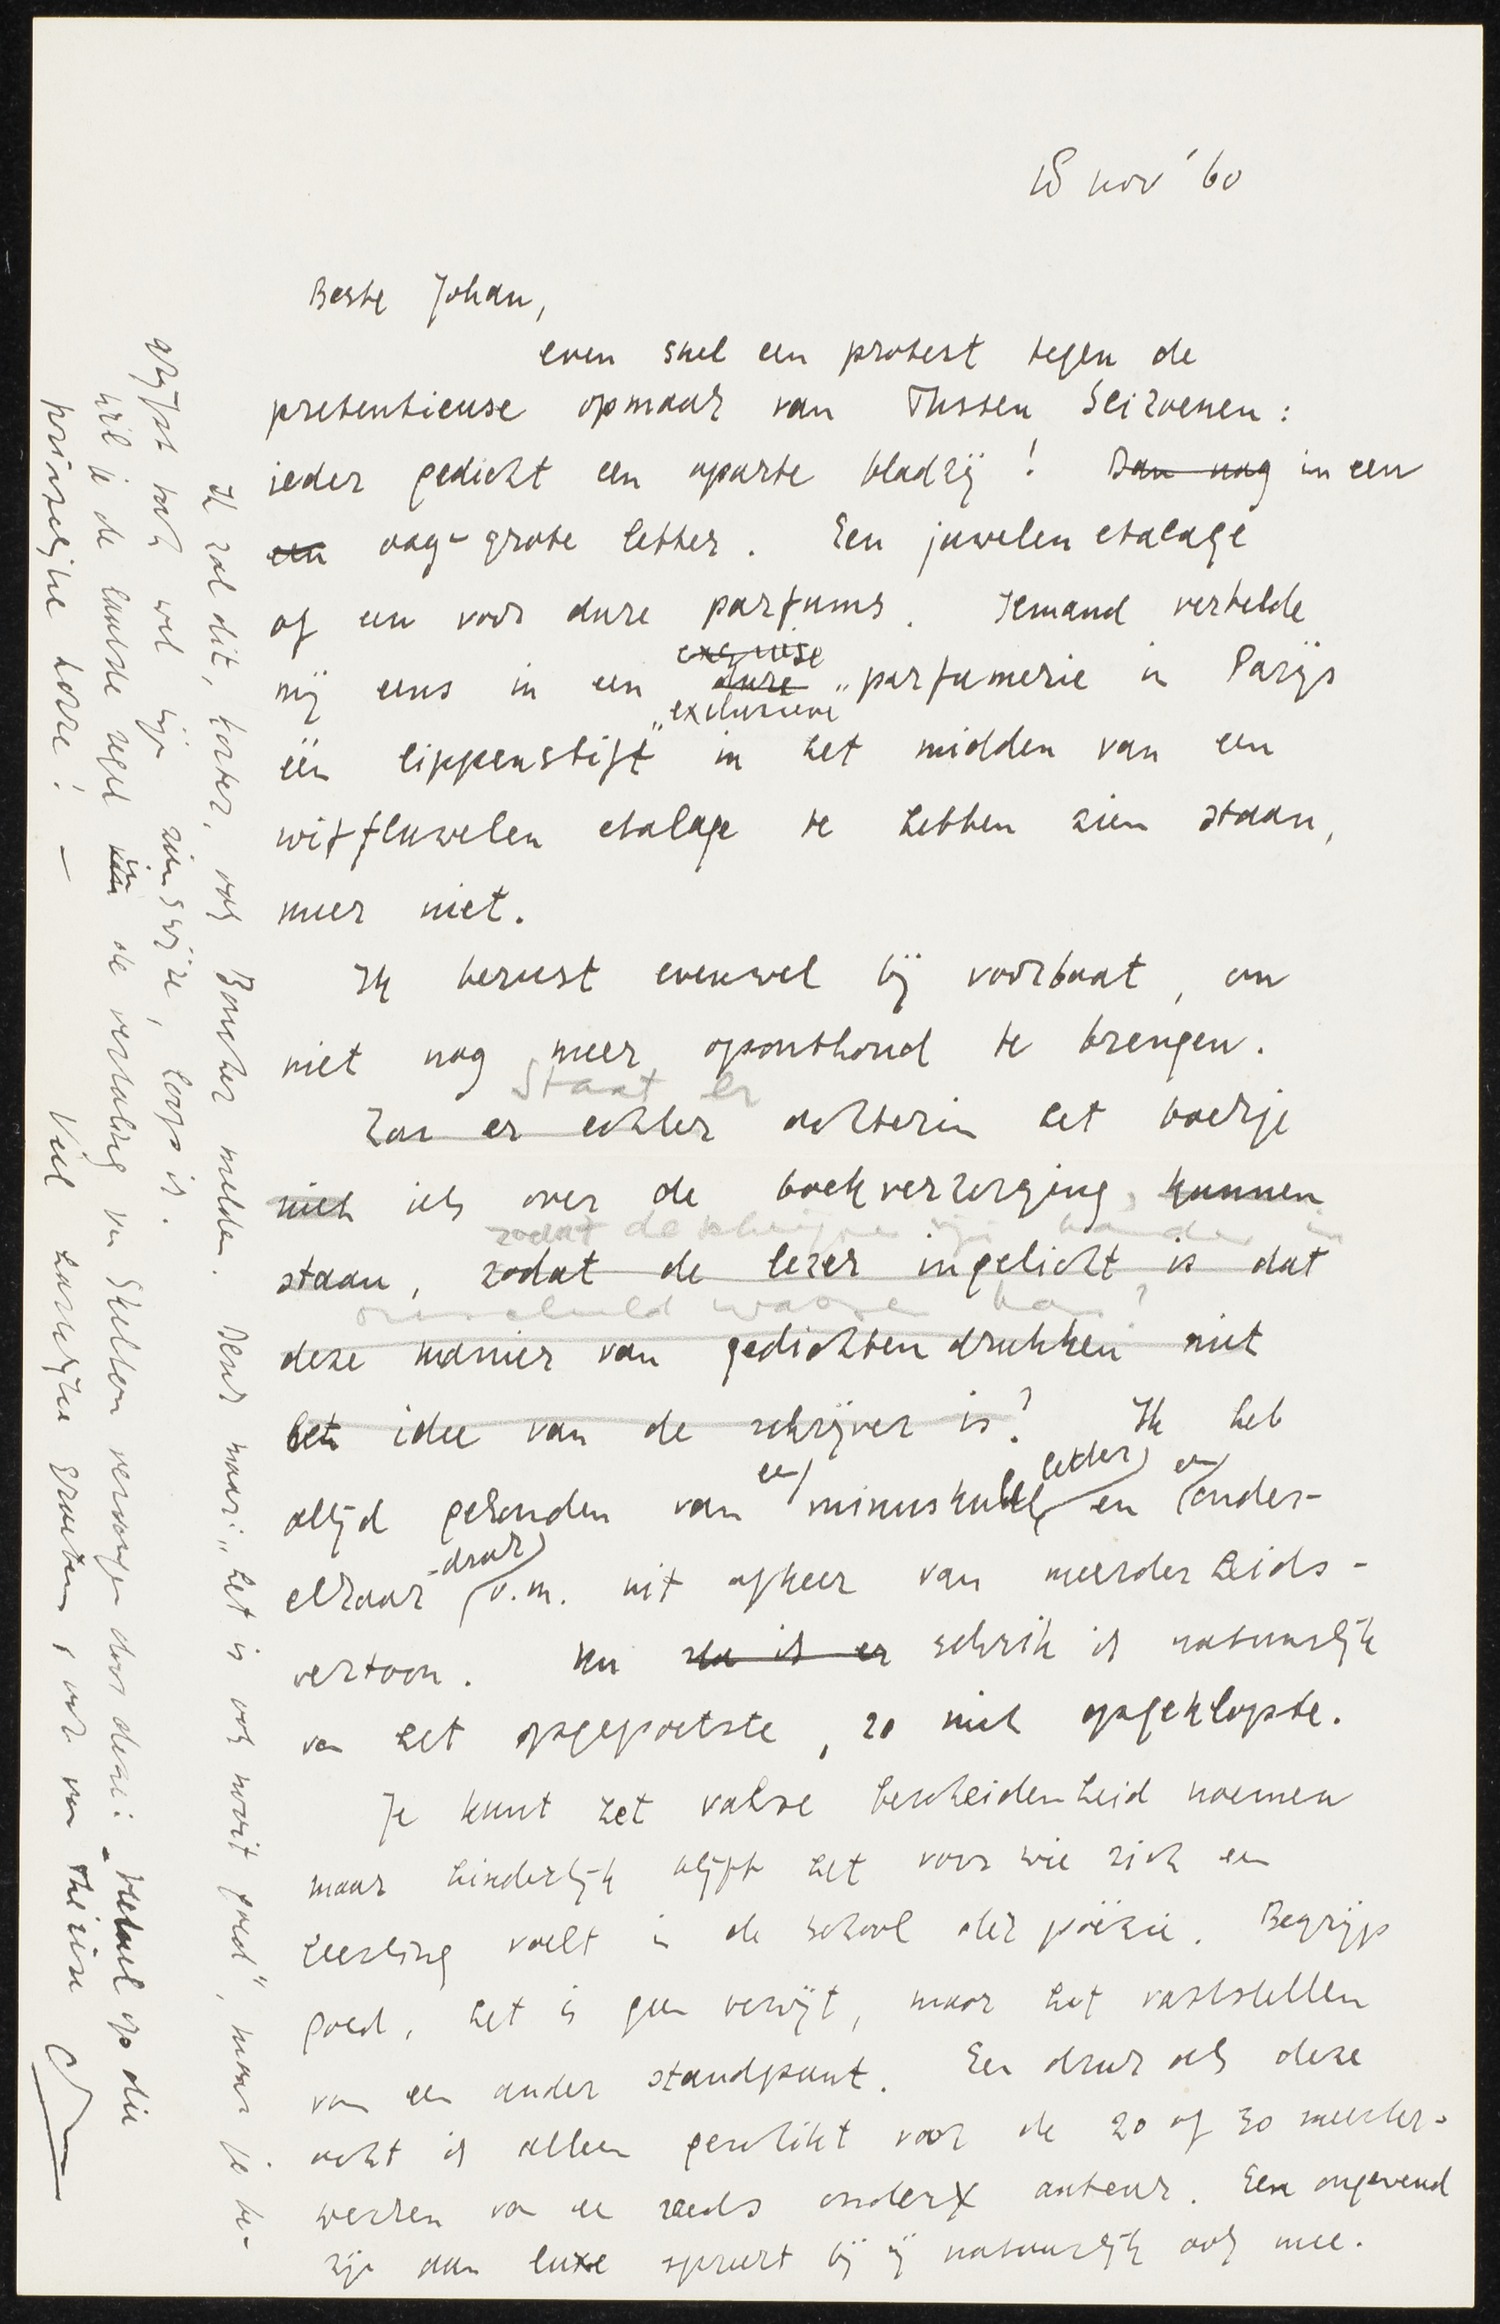 18 nov '60
Beste Johan,
even snel een protest tegen de
pretentieuse opmaak van Tussen Seizoenen:
ieder gedicht een aparte bladzij! Dan nog in een
een oog-grote letter. Een juwelen etalage
of een voor dure parfums. Iemand vertelde
exquise
mij eens in een dure "parfumerie in Parijs
"exclusieve
één lippenstift in het midden van een
witfluwelen etalage te hebben zien staan,
meer niet.
Ik berust evenwel bij voorbaat, om
niet nog meer oponthoud te brengen.
Staat er
Zou er echter achterin het boekje
niet iets over de boekverzorging, kunnen
zodat de zijn handen in
staan, zodat de lezer ingelicht is dat
onschuld wassen kan?
deze manier van gedichten drukken niet
het idee van de schrijver is? Ik heb
een letter en
altijd gehouden van minuskuul en onder-
-druk
elkaar v.m. uit afkeer van meerderheids-
vertoon. Mn sla is er schrik is natuurlijk
van het opgepoetste, zo niet opgeklopte.
Je kunt het valse bescheidenheid noemen
maar hinderlijk blijft het voor wie zich een
leerling voelt in de school der poëzie. Begrijp
goed, het is geen verwijt, maar het vaststellen
van een ander standpunt. Een druk als deze
acht ik alleen geschikt voor de 20 of 30 meester-
werken van een reeds auteur. Een ongewend
zijn aan luxe spreekt bij mij natuurlijk ook mee.
Ik zal dit, korter, ook Boucher melden. Denk maar: "het is ook nooit goed", maar je be-
grijpt toch wel mijn zienswijze, hoop ik.
Wil je de laatste regel in de vertaling van Skelton vervangen door deze: "
op die
prinselijke borre! — Veel hartelijke groeten, ook van Thérèse